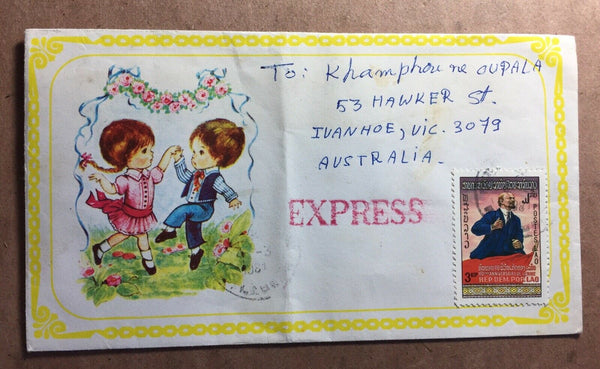 To: Khamphoune OUPALA
53 HAWKER St.
IVANHOE, VIC. 3079
AUSTRALIA.
EXPRESS
POSTES LAO
3
REP. DEM. POP. LAO